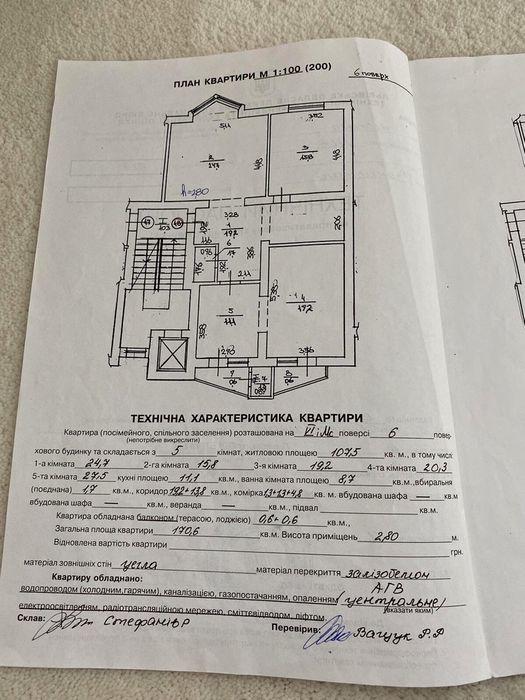 ПЛАН КВАРТИРИ М 1:100 (200)
6 поверх
5,11
3,72
2
24,7
4,83
3
15,8
h=2,80
47
I
103
48
3,28
1
19,2
6
1,7
2,11
5,38
4
19,2
3,58
5
11,1
2,90
3,56
7
ТЕХНІЧНА ХАРАКТЕРИСТИКА КВАРТИРИ
Квартира (посімейного, спільного заселення) розташована на VI і Мс поверсі 6 повер
(непотрібне викреслити)
хового будинку та складається з 5 кімнат, житловою площею 107,5 кв. м., в тому числі
1-а кімната 24,7 2-га кімната 15,8 3-я кімната 19,2 4-та кімната 20,3
5-та кімната 27,5 кухні площею 11,1 кв. м., ванна кімната 8,7 кв.м.,вбиральня
(поєднана) 1,7 кв. м., коридор 19,2+13,8 кв. м., комірка 1,3+1,3+4,8 кв. м. вбудована шафа — кв.м
вбудована шафа — кв. м., веранда — кв. м., підвал кв.м.
Квартира обладнана балконом (терасою, лоджією) 0,6+0,6 кв.м.,
Загальна площа квартири 170,6 кв.м. Висота приміщень 2,80 м.
Відновлена вартість квартири грн.
матеріал зовнішніх стін цегла матеріал перекриття залізобетон
Квартиру обладнано: АГВ
водопроводом (холодним,гарячим), каналізацією, газопостачанням, опаленням (центральне)
(вказати яким)
електроосвітленням, радіотрансляційною мережею, сміттєвідводом, ліфтом
Склав: Стефанів Р Перевірив: Ващук Р.Р